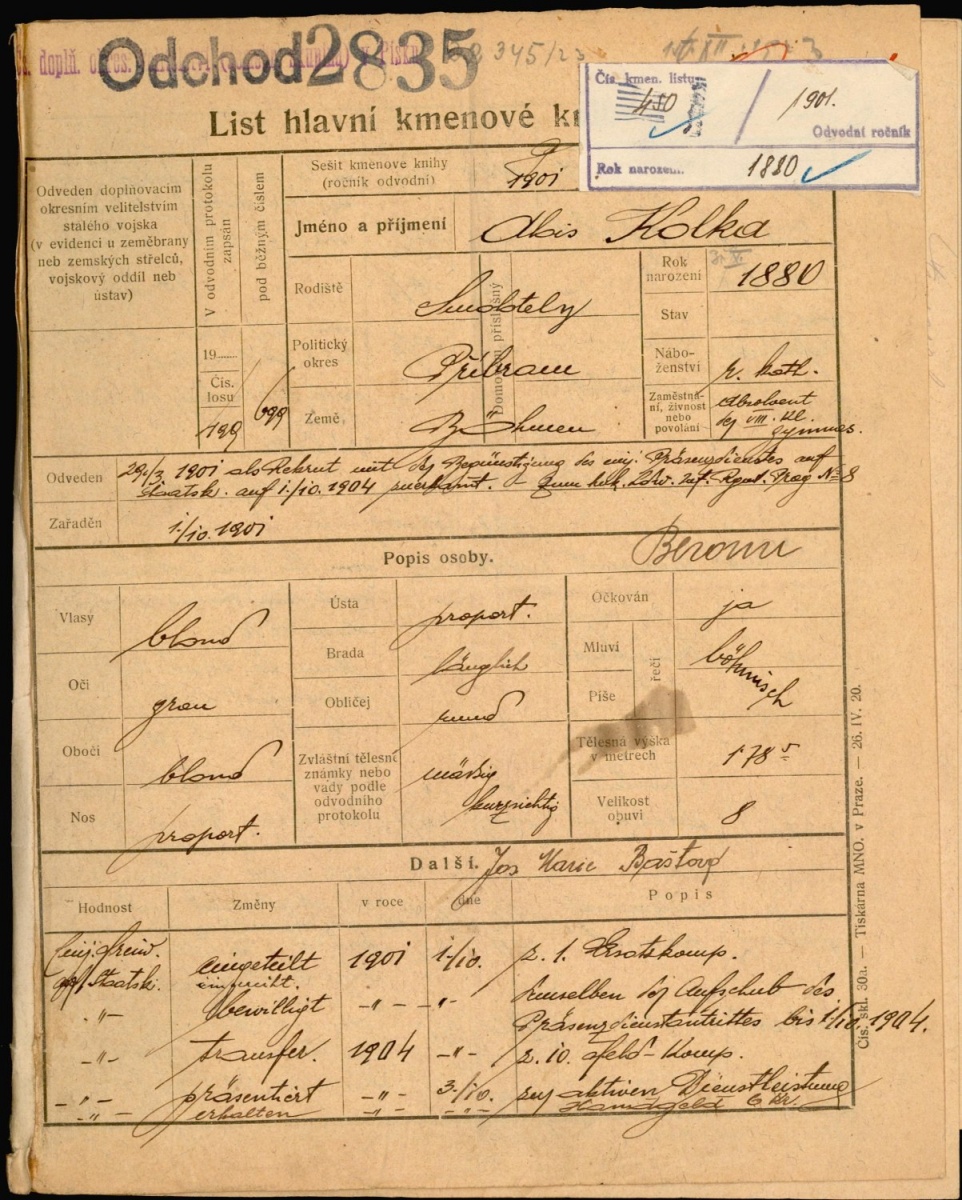 Odchod 2835
345/23
List hlavní kmenové
Čís. kmen. listu
450 / 1901.
Odvodní ročník
Rok narozen. 1880
Odveden doplňovacím
okresním velitelstvím
stálého vojska
(v evidenci u zeměbrany
neb zemských střelců,
vojskový oddíl neb
ústav)
V odvodním protokolu
zapsán
pod běžným číslem
19
Čís.
losu
199
699
Sešit kmenové knihy
(ročník odvodní)
1901
Jméno a příjmení
Alois Kolka
Rodiště
Smolotely
Politický
okres
Příbram
Země
Böhmen
Domovem příslušný
Rok
narození
1880
Stav
Nábo-
ženství
r. kath.
Zaměstná-
ní, živnost
nebo
povolání
Absolvent
der VIII. Kl.
Gymnas.
Odveden
29/3. 1901 als Rekrut mit der Begünstigung des einj. Präsenzdienstes auf
Staatsk. auf 1./10. 1904 zuerkannt. – Zum k.k. Ldw. Inf. Rgmt. Prag № 8
Zařaděn
1./10. 1901
Beroun
Popis osoby.
Vlasy
blond
Oči
grau
Obočí
blond
Nos
proport.
Ústa
proport.
Brada
länglich
Obličej
rund
Zvláštní tělesné
známky nebo
vady podle
odvodního
protokolu
mässig
kurzsichtig
Očkován
ja
Mluví
Píše
řečí
böhmisch
Tělesná výška
v metrech
178
Velikost
obuvi
8
Další.
Marie
Hodnost
Změny
v roce
dne
Popis
Einj. Freiw.
auf Staatsk.
eingeteilt
1901
1./10.
z. 1. Ersatzkomp.
-"-
bewilligt
-"-
-"-
demselben der Aufschub des
Präsenzdienstantrittes bis 1./10. 1904.
-"-
transfer.
1904
-"-
z. 10. Feld-Komp.
-"-
präsentiert
-"-
3./10.
zur aktiven Dienstleistung
-"-
erhalten
-"-
-"-
Handgeld 6 Kr.
Čís. skl. 30a. — Tiskárna MNO. v Praze. — 26. IV. 20.